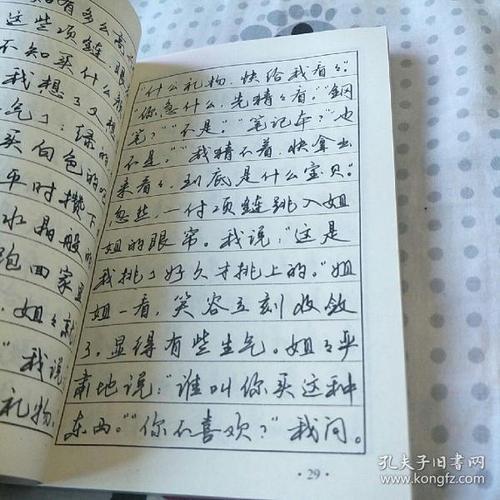 这些项链
不知买什么
我想了又想
气了:绿的
买白色的吧
平时攒下
水晶般的
跑回家里
姐々就
”我说
礼物,
“什么礼物,快给我看々。”
“你急什么,先猜々看。”“钢
笔?”“不是。”“笔记本?”“也
不是。”“我猜不着,快拿出
来看々,到底是什么宝贝。”
忽然,一付项链跳入姐
姐的眼帘。我说:“这是
我挑了好久才挑上的。”姐
姐一看,笑容立刻收敛
了,显得有些生气。姐々严
肃地说:“谁叫你买这种
东西。”“你不喜欢?”我问。
·29·
孔夫子旧书网
www.kongfz.com